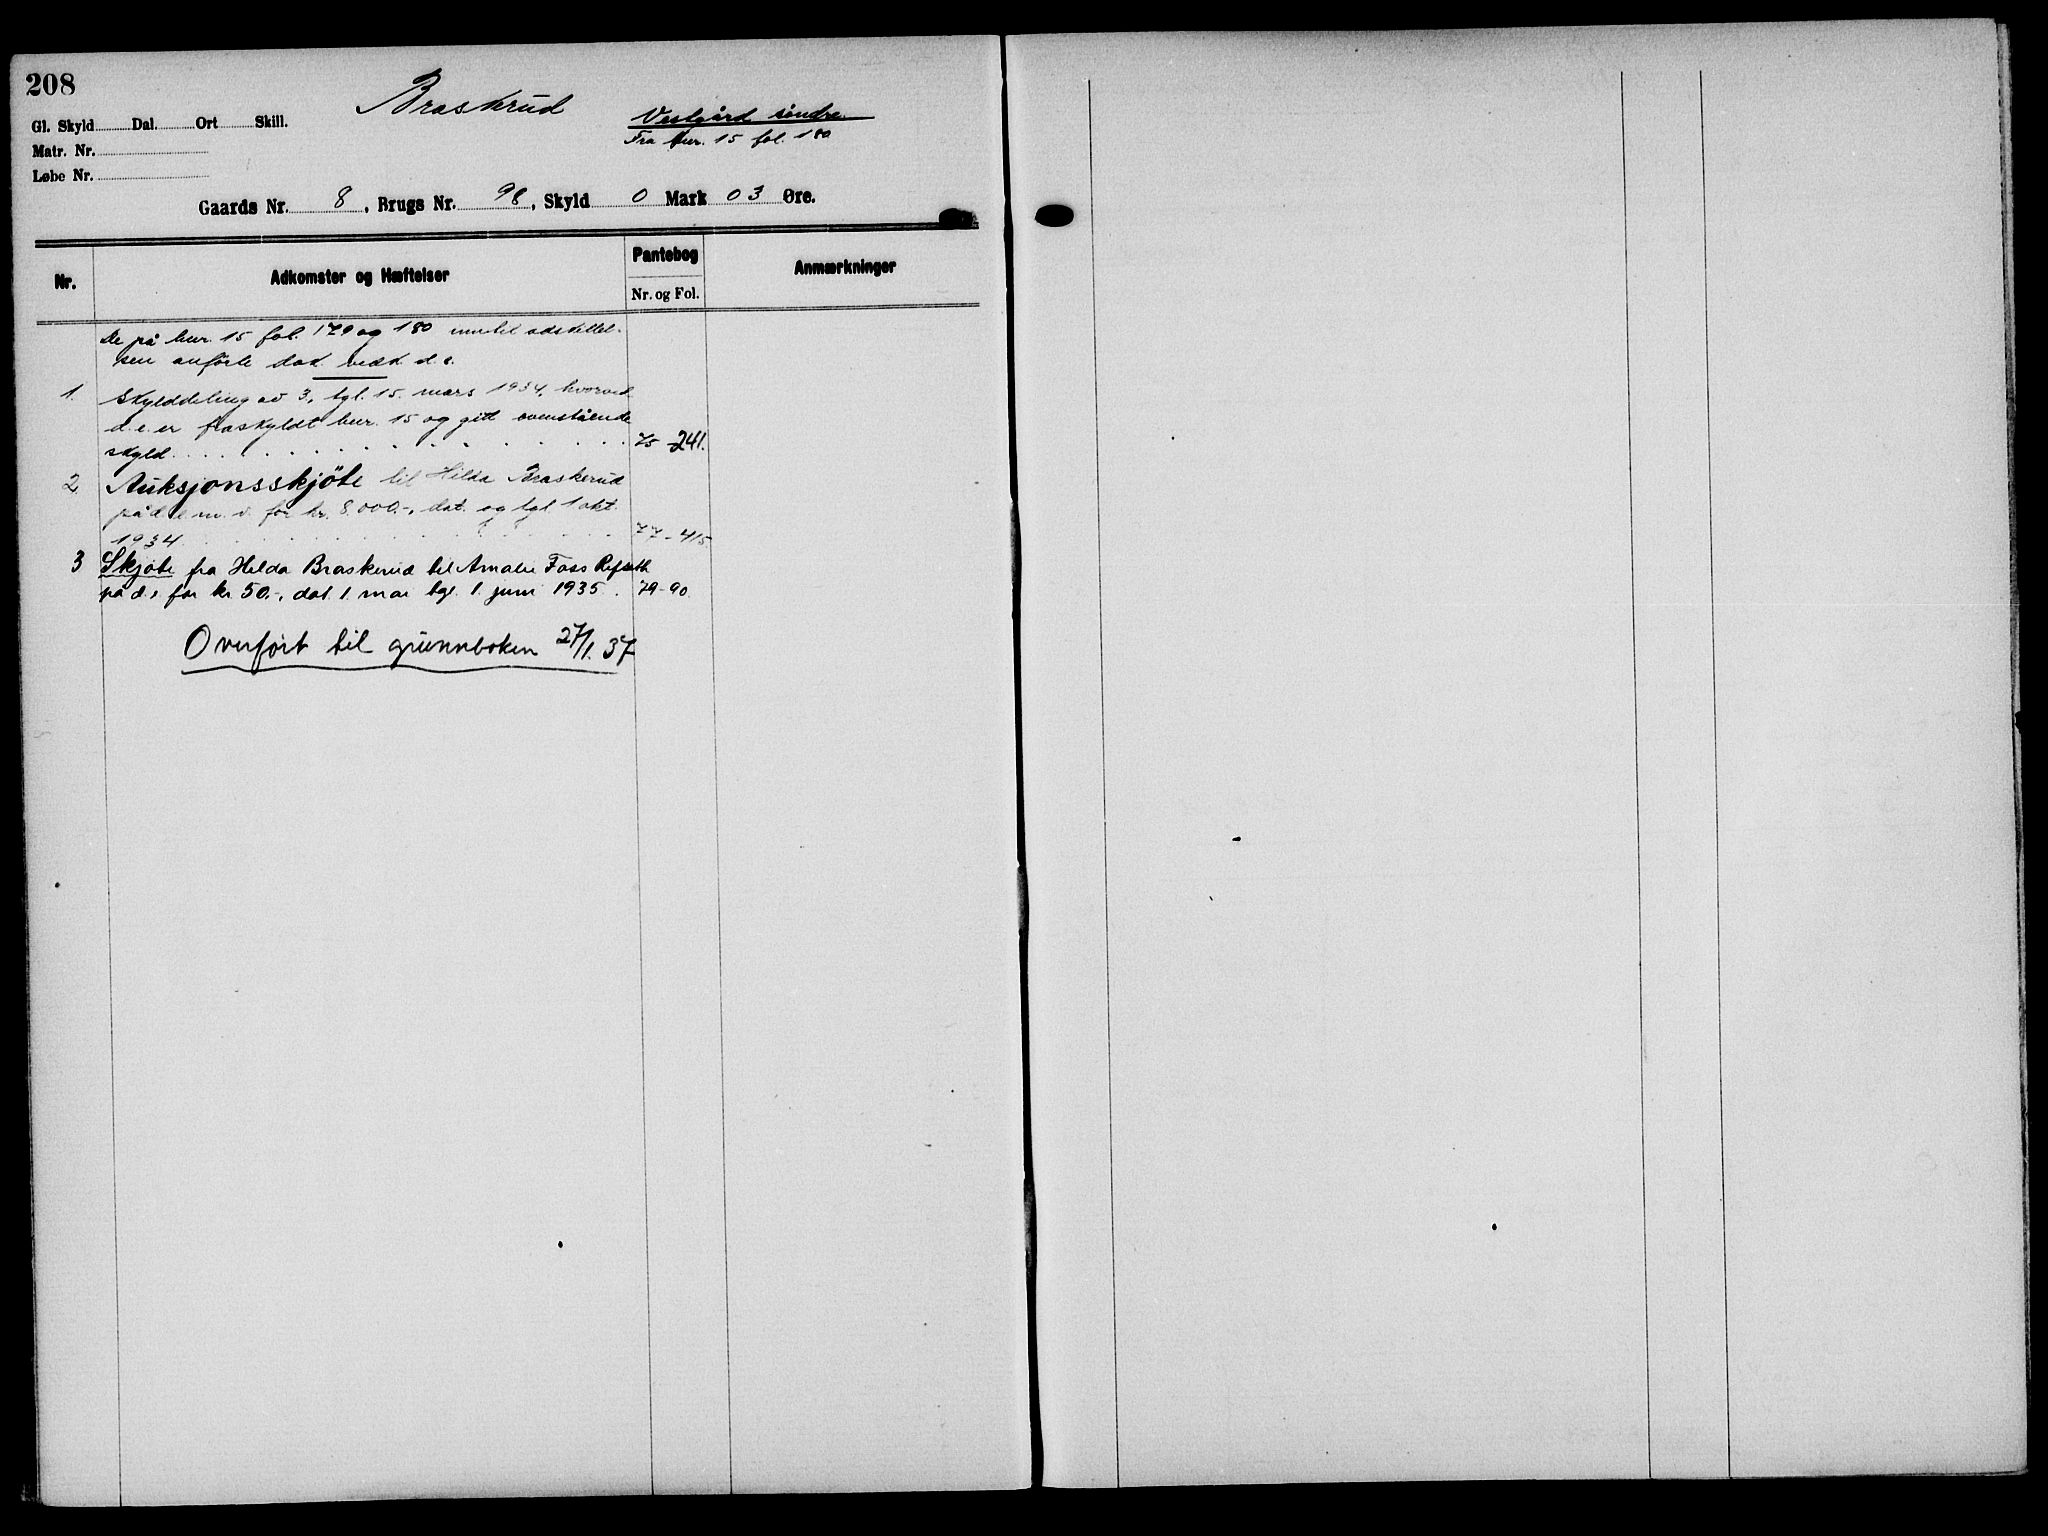 208
Braskrud
Vestgård søndre.
Fra bnr. 15 fol. 180
Gl. Skyld Dal. Ort Skill.
Matr. Nr.
Løbe Nr.
Gaards Nr. 8, Brugs Nr. 98, Skyld 0 Mark 03 Øre.
Nr. Adkomster og Hæftelser Pantebog Nr. og Fol. Anmærkninger
De på bnr. 15 fol. 179 og 180 inntil adskillel-
sen anførte dok. vedk. d. e.
1. Skylddeling av 3, tgl. 15. mars 1934, hvorved
d. e. er fraskyldt bnr. 15 og gitt ovenstående
skyld. 75-241.
2 Auksjonsskjöte til Hilda Braskerud
på d. e. m. v. for kr. 8.000.-, dat. og tgl. 1 okt.
1934 77-415
3 Skjøte fra Hilda Braskerud til Amalie Foss Refseth
på d. e. for kr 50.-, dat. 1. mai tgl. 1. juni 1935. 79-90.
Overført til grunnboken 27/1. 37